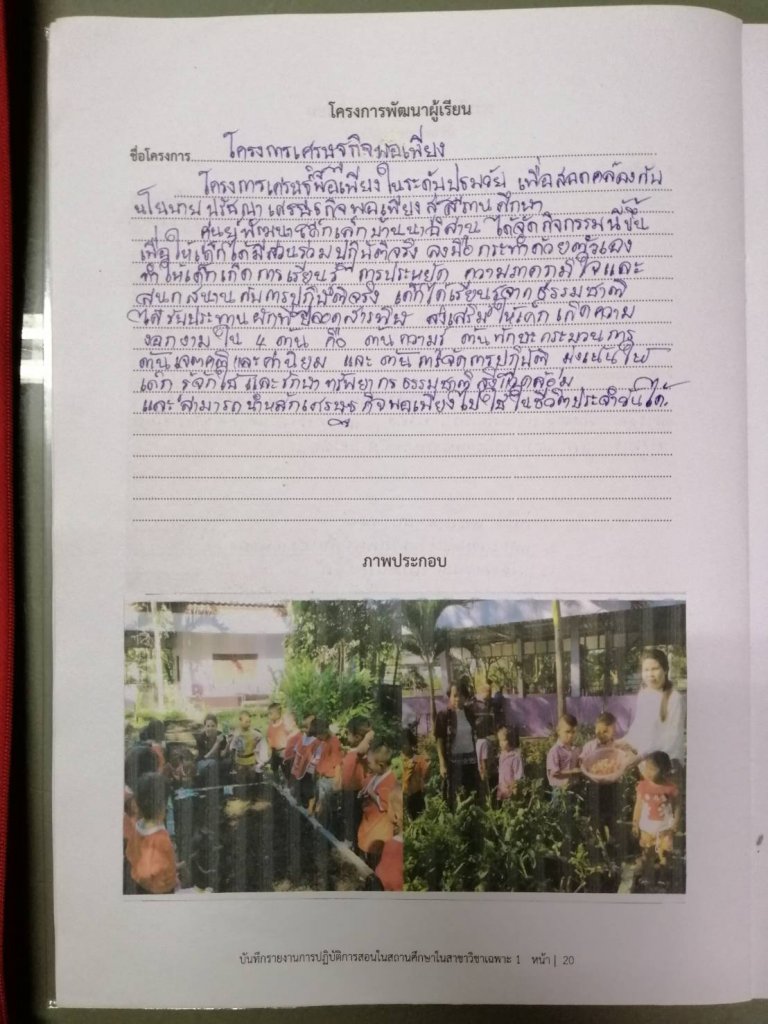 โครงการพัฒนาผู้เรียน
ชื่อโครงการ โครงการเศรษฐกิจพอเพียง
โครงการเศรษฐกิจพอเพียงในระดับปฐมวัย เพื่อสอดคล้องกับ
นโยบายปรัชญาเศรษฐกิจพอเพียงสู่สถานศึกษา
ศูนย์พัฒนาเด็กเล็กบ้าน ได้จัดกิจกรรมนี้ขึ้น
เพื่อให้เด็กได้มีส่วนร่วมปฏิบัติจริง ลงมือกระทำด้วยตัวเอง
ทำให้เด็กเกิดการเรียนรู้ การประหยัด ความภาคภูมิใจและ
สนุกสนานกับการปฏิบัติจริง เด็กได้เรียนรู้จากธรรมชาติ
ได้รับประทานผักที่ปลอดสารพิษ ส่งเสริมให้เด็กเกิดความ
งอกงามใน 4 ด้าน คือ ด้านความรู้ ด้านทักษะกระบวนการ
ด้านเจตคติและค่านิยม และด้านการจัดการปฏิบัติ มุ่งเน้นให้
เด็กรู้จักใช้และรักษาทรัพยากรธรรมชาติ สิ่งแวดล้อม
และสามารถนำหลักเศรษฐกิจพอเพียงไปใช้ในชีวิตประจำวันได้
ภาพประกอบ
บันทึกรายงานการปฏิบัติการสอนในสถานศึกษาในสาขาวิชาเฉพาะ 1 หน้า | 20